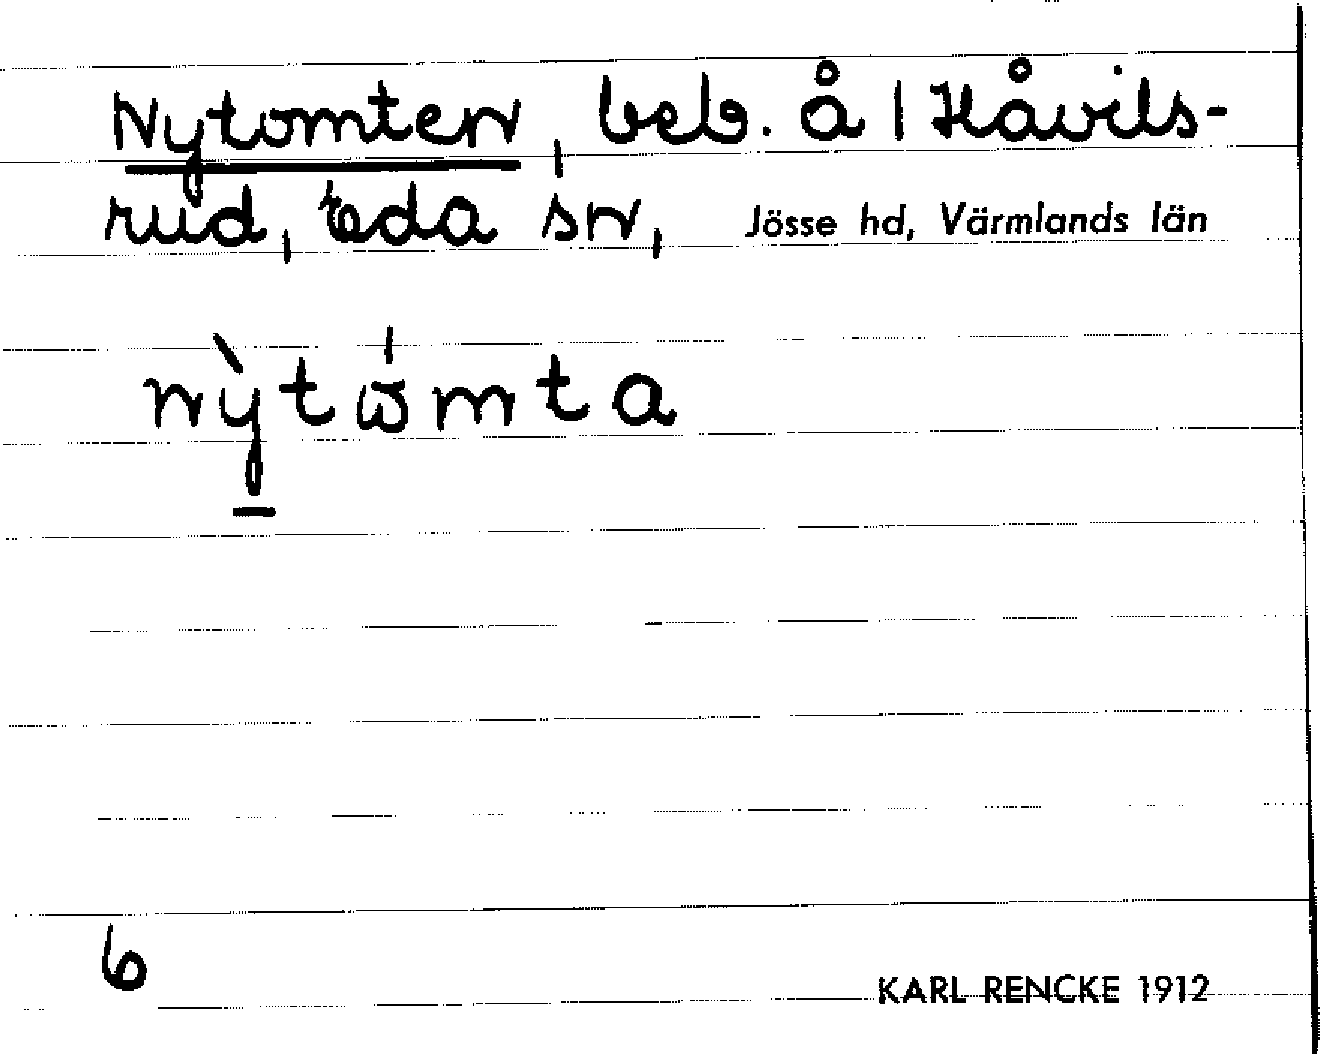 Nytomten, beb. å 1 Håvils-
rud, Eda sn, Jösse hd, Värmlands län
nỳtω̍mta
6
KARL RENCKE 1912